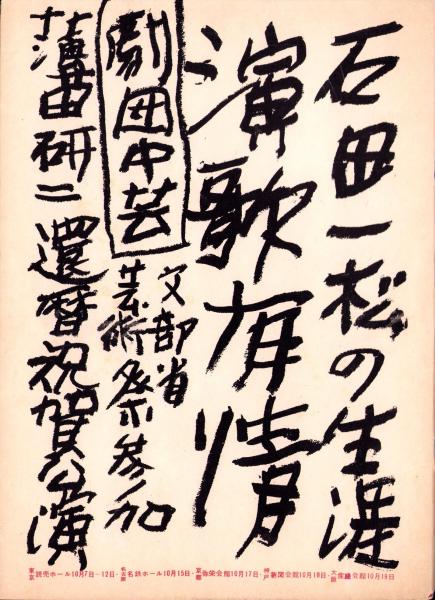 石田一松の生涯
演歌有情
文部省
芸術祭参加
劇団中芸
薄田研二還暦祝賀公演
東京読売ホール10月7日—12日・名古屋名鉄ホール10月15日・京都弥栄会館10月17日・神戸新聞会館10月18日・大阪産経会館10月19日